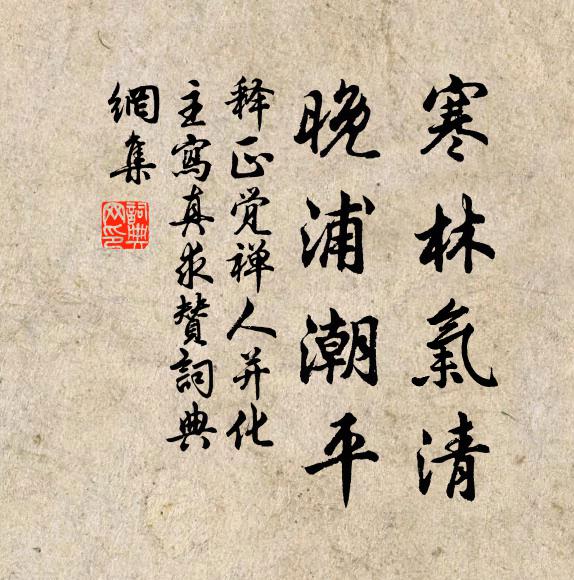 寒林氣清
晚浦潮平
释正觉禅人并化
主寫真求贊詞典
網集
詞典网印